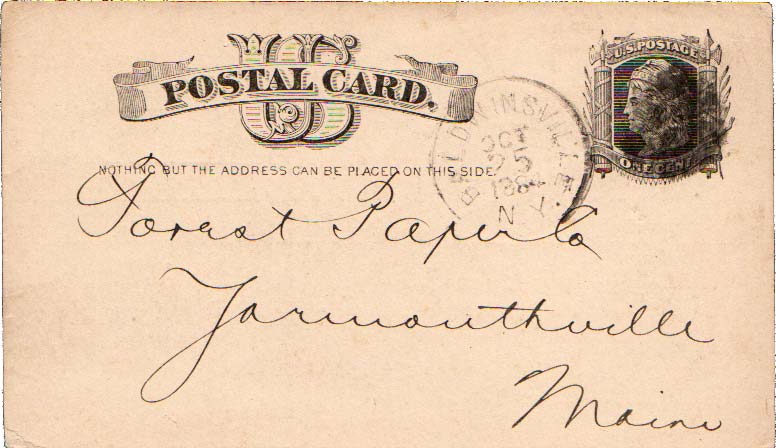 US
POSTAL CARD.
U.S. POSTAGE
ONE CENT
NOTHING BUT THE ADDRESS CAN BE PLACED ON THIS SIDE.
BALDWINSVILLE
OCT
25
1884
N.Y.
Forest Paper Co
Yarmouthville
Maine